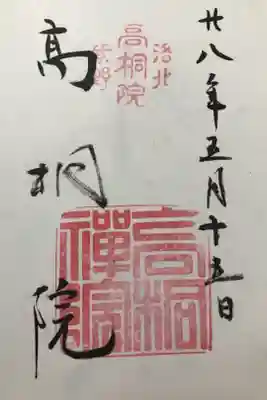 廿八年五月十五日
洛北
高桐院
紫野
高桐院
高桐禅窟